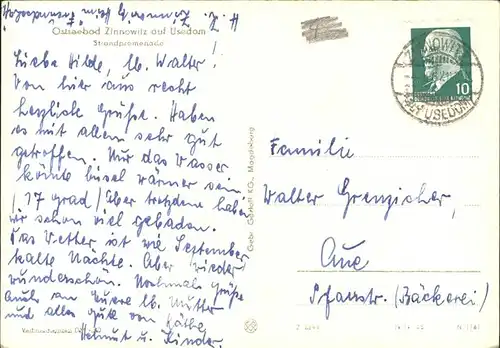 z. Z. Zinnowitz Heim
Ostseebad Zinnowitz auf Usedom
Strandpromenade
Liebe Hilde, lb. Walter!
Von hier aus recht
herzliche Grüße. Haben
es mit allem sehr gut
getroffen. Nur das Wasser
könnte bissel wärmer sein
/17 grad/ Aber trotzdem haben
wir schon viel gebadet.
Das Wetter ist wie September
kalte Nächte. Aber wieder
wunderschön. Nochmals Grüße
Auch an Euere lb. Mutter
und alles gute von Käthe,
Helmut u. Kinder.
Gebr. Garloff KG., Magdeburg
ZINNOWITZ
AUF USEDOM
10
Familie
Walter Grenzicher,
Aue
Pfarrstr. (Bäckerei)